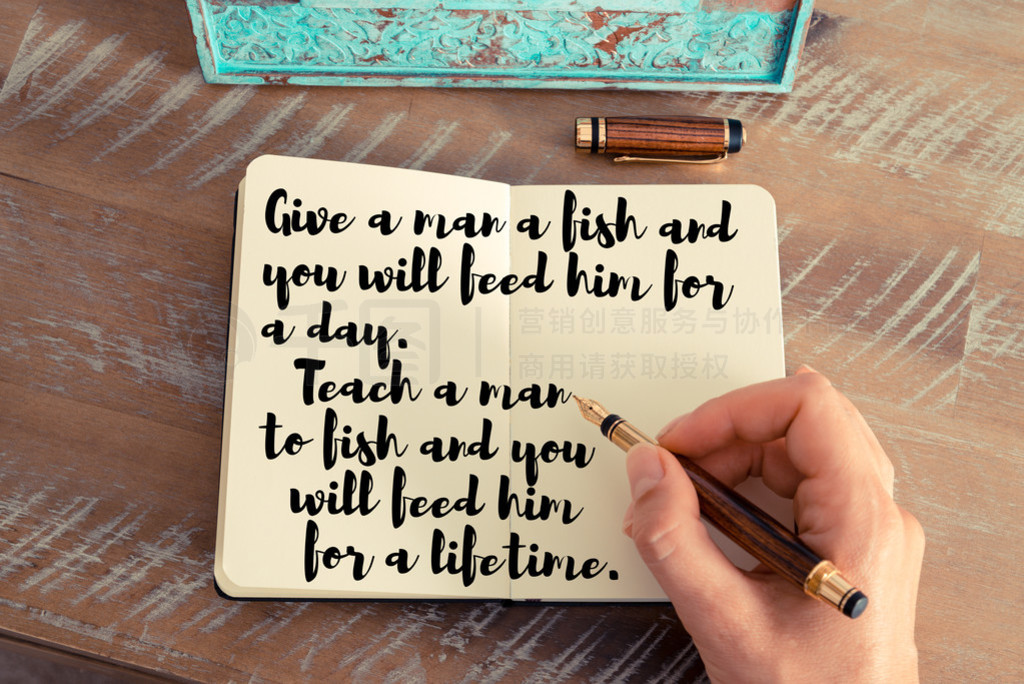 Give a man a fish and
you will feed him for
a day.
Teach a man
to fish and you
will feed him
for a lifetime.
千图
营销创意服务与协作
商用请获取授权